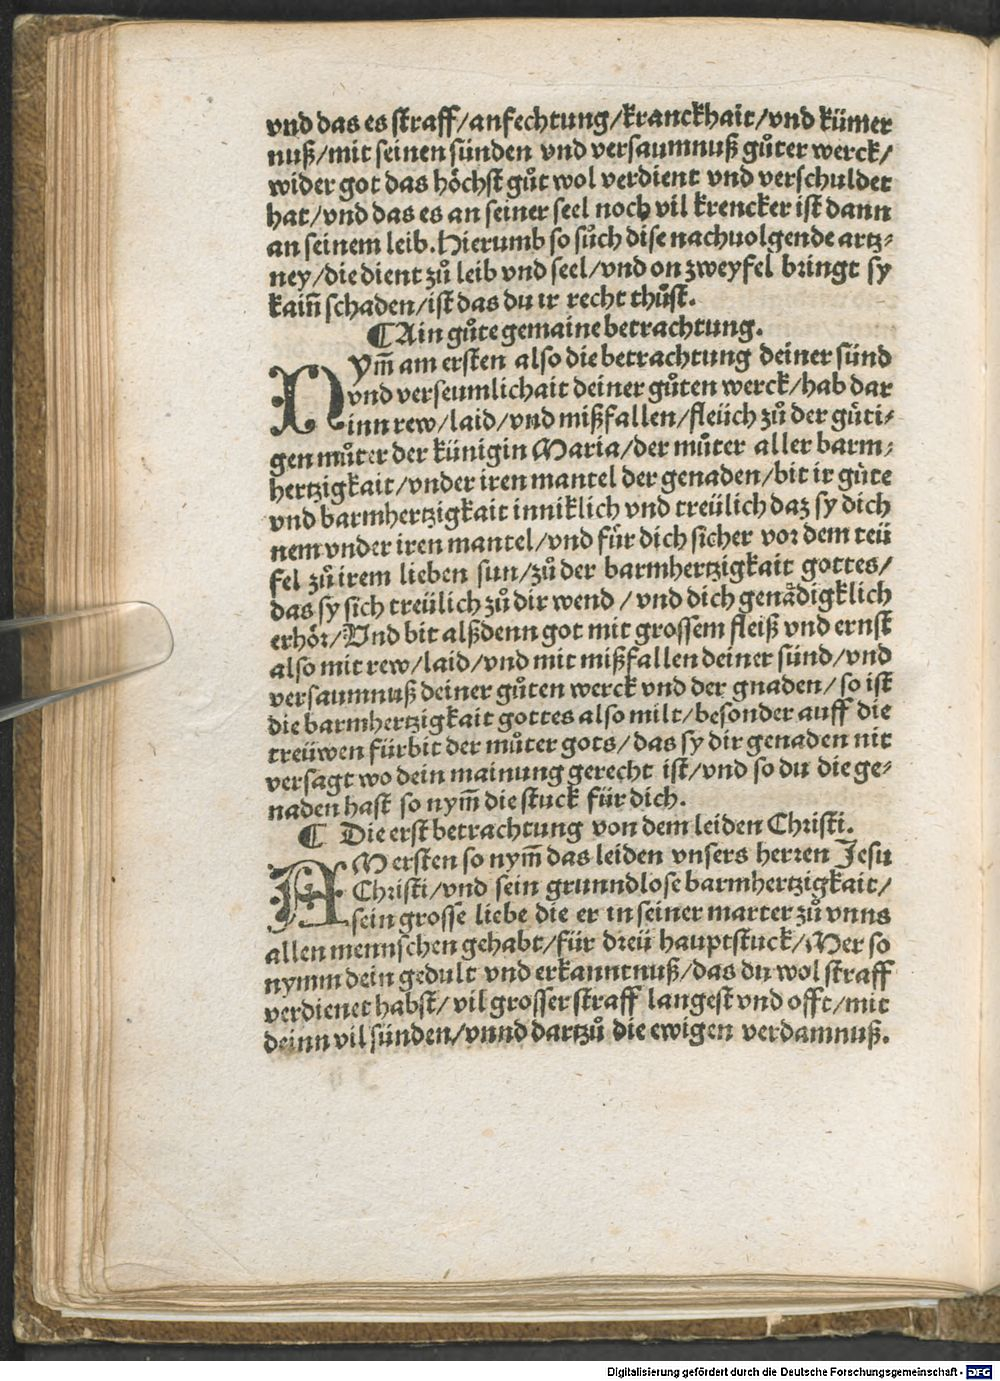 vnd das es straff/anfechtung/kranckhait/vnd kümer
nuß/mit seinen sünden vnd versaumnuß gůter werck/
wider got das höchst gůt wol verdient vnd verschuldet
hat/vnd das es an seiner seel noch vil krencker ist dann
an seinem leib. Hierumb so sůch dise nachuolgende artz⸗
ney/die dient zů leib vnd seel/vnd on zweyfel bringt sy
kain̄ schaden/ist das du ir recht thůst.
¶Ain gůte gemaine betrachtung.
NYm̄ am ersten also die betrachtung deiner sünd
vnd verseumlichait deiner gůten werck/hab dar
inn rew/laid/vnd mißfallen/fleüch zů der gůti⸗
gen můter der künigin Maria/der můter aller barm⸗
hertzigkait/vnder iren mantel der genaden/bit ir gůte
vnd barmhertzigkait inniklich vnd treülich daz sy dich
nem vnder iren mantel/vnd für dich sicher vor dem teü
fel zů irem lieben sun/zů der barmhertzigkait gottes/
das sy sich treülich zů dir wend/vnd dich genådigklich
erhör/Vnd bit alßdenn got mit grossem fleiß vnd ernst
also mit rew/laid/vnd mit mißfallen deiner sünd/vnd
versaumnuß deiner gůten werck vnd der gnaden/so ist
die barmhertzigkait gottes also milt/besonder auff die
treüwen fürbit der můter gots/das sy dir genaden nit
versagt wo dein mainung gerecht ist/vnd so du die ge⸗
naden hast so nym̄ die stuck für dich.
¶ Die erst betrachtung von dem leiden Christi.
AM ersten so nym̄ das leiden vnsers herren Jesu
Christi/vnd sein grunndlose barmhertzigkait/
sein grosse liebe die er in seiner marter zů vnns
allen mennschen gehabt/für dreü hauptstuck/Mer so
nymm dein gedult vnd erkanntnuß/das du wol straff
verdienet habst/vil grosser straff langest vnd offt/mit
deinn vil sünden/vnnd dartzů die ewigen verdamnuß.
Digitalisierung gefördert durch die Deutsche Forschungsgemeinschaft - DFG